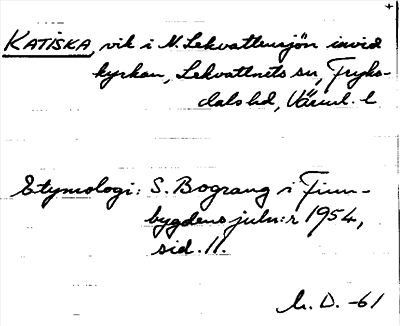 KATISKA, vik i N. Lekvattensjön invid
kyrkan, Lekvattnets sn, Fryks-
dals hd, Värml. l
Etymologi: S. Bograng i Finn-
bygdens julnr 1954,
sid. 11.
M. D. -61